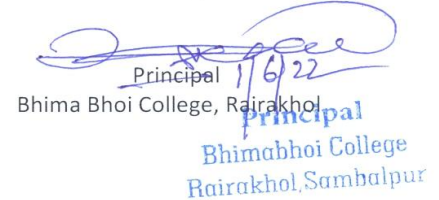 1/6/22
Principal
Bhima Bhoi College, Rairakhol
Principal
Bhimabhoi College
Rairakhol, Sambalpur